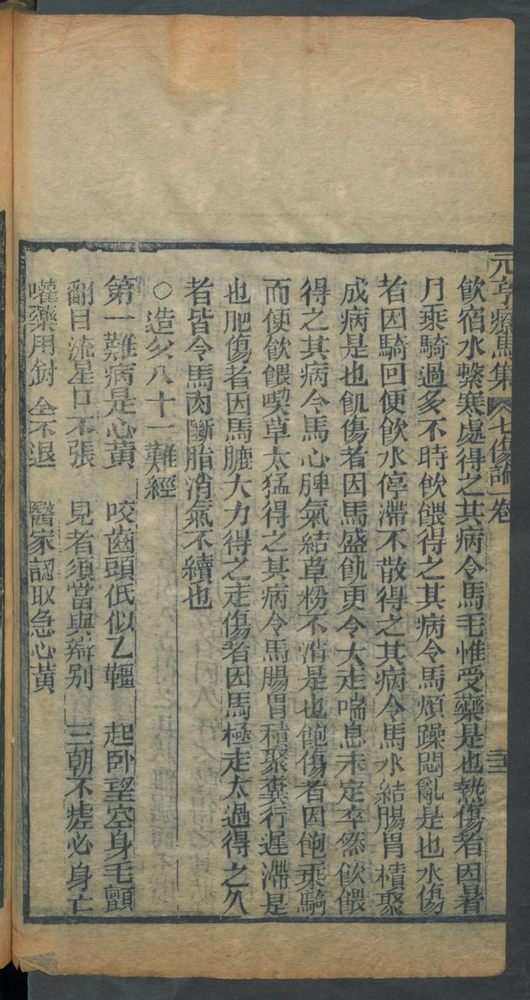 元亨療馬集 七傷論一卷 三三
飲宿水繫寒處得之其病令馬毛惟受藥是也熱傷者因暑
月乘騎過多不時飲餵得之其病令馬煩躁悶亂是也水傷
者因騎回便飲水停滯不散得之其病令馬水結腸胃積聚
成病是也飢傷者因馬盛飢更令大走喘息未定卒然飲餵
得之其病令馬心脾氣結草粉不消是也飽傷者因飽乘騎
而便飲餵喫草太猛得之其病令馬腸胃積聚糞行遲滯是
也肥傷者因馬膔大力得之走傷者因馬極走太過得之久
者皆令馬肉斷脂消氣不續也
○造父八十一難經
第一難病是心黃 咬齒頭低似乙韁 起卧望空身毛顫
翻目流星口不張 見者須當與辯別 三朝不瘥必身亡
嚾藥用針全不退 醫家認取急心黃